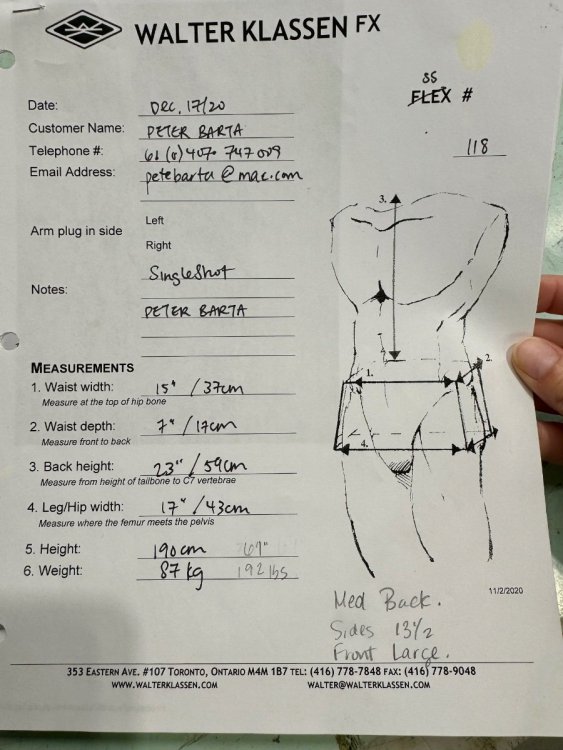 WALTER KLASSEN FX
SS
FLEX #
118
Date: DEC. 17/20
Customer Name: PETER BARTA
Telephone #: 61 (0)407 747 009
Email Address: petebarta@mac.com
Arm plug in side
Left
Right
Notes: SingleShot
PETER BARTA
MEASUREMENTS
1. Waist width: 15" / 37cm
Measure at the top of hip bone
2. Waist depth: 7" / 17cm
Measure front to back
3. Back height: 23" / 59cm
Measure from height of tailbone to C7 vertebrae
4. Leg/Hip width: 17" / 43cm
Measure where the femur meets the pelvis
5. Height: 190cm
6. Weight: 87 kg 192 lbs
3.
1.
2.
4.
11/2/2020
Med Back.
Sides 13 1/2
Front Large.
353 EASTERN AVE. #107 TORONTO, ONTARIO M4M 1B7 TEL: (416) 778-7848 FAX: (416) 778-9048
WWW.WALTERKLASSEN.COM WALTER@WALTERKLASSEN.COM